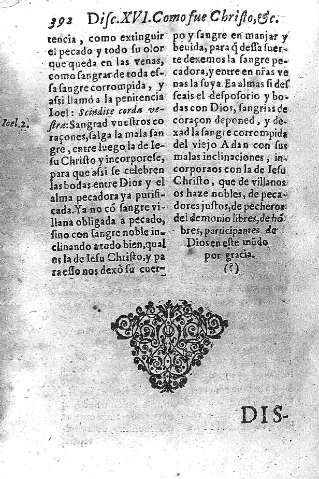 392 Disc.XVI.Como fue Christo,&c.
tencia, como extinguir
el pecado y todo su olor
que queda en las venas,
como sangrar de toda es-
sa sangre corrompida, y
assi llamó a la penitencia
Ioel: Scindite corda ve-
stra: Sangrad vuestros co-
raçones, salga la mala san
gre, entre luego la de Ie-
su Christo y incorporese,
para que assi se celebren
las bodas entre Dios y el
alma pecadora ya purifi-
cada. Ya no có sangre vi-
llana obligada a pecado,
sino con sangre noble in-
clinando a todo bien, qual
es la de Iesu Christo, y pa
ra esso nos dexó su cuer-
Ioel.2.
po y sangre en manjar y
beuida, para q̃ dessa suer-
te dexemos la sangre pe-
cadora, y entre en ñras ve
nas la suya. Ea almas si des
seais el desposorio y bo-
das con Dios, sangrias de
coraçon deponed, y de-
xad la sangre corrompida
del viejo Adan con sus
malas inclinaciones, in-
corporaos con la de Iesu
Christo, que de villanos
os haze nobles, de peca-
dores justos, de pecheros
del demonio libres, de hõ
bres, participantes de
Dios en este mũdo
por gracia.
(?)
DIS-